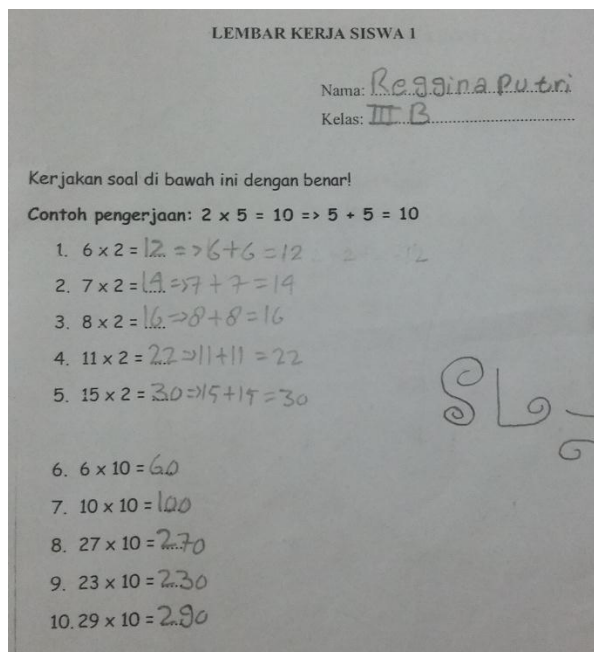 LEMBAR KERJA SISWA 1
Nama: Reggina Putri
Kelas: III B
Kerjakan soal di bawah ini dengan benar!
Contoh pengerjaan: 2 x 5 = 10 => 5 + 5 = 10
1. 6 x 2 = 12 => 6+6 = 12
2. 7 x 2 = 14 => 7 + 7 = 14
3. 8 x 2 = 16 => 8+8 = 16
4. 11 x 2 = 22 => 11+11 = 22
5. 15 x 2 = 30 => 15+15 = 30
6. 6 x 10 = 60
7. 10 x 10 = 100
8. 27 x 10 = 270
9. 23 x 10 = 230
10. 29 x 10 = 290